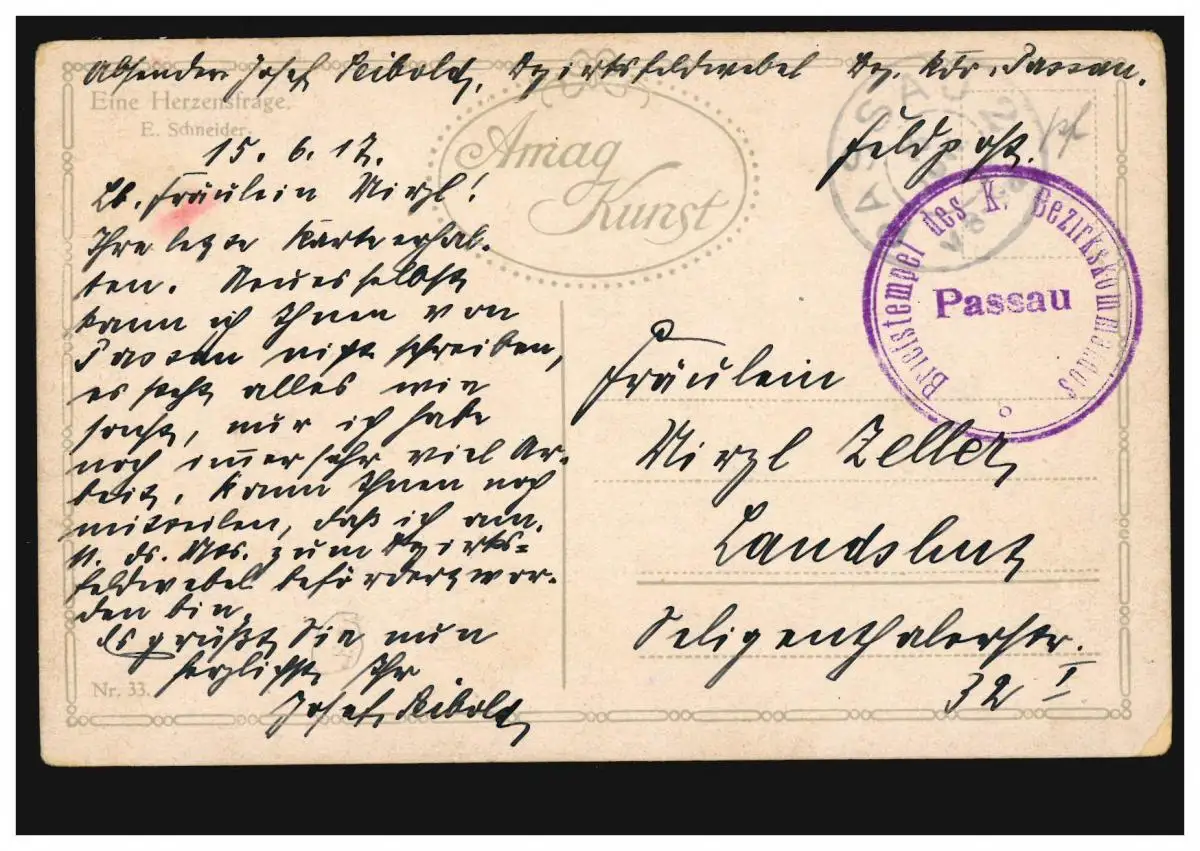 Absender Josef Seibold, Bzirksfeldwebel Bz. Kdo. Passau.
Eine Herzensfrage.
E. Schneider.
Amag
Kunst
PASSAU 2
Feldpost.
15. 6. 17.
Lb. Fräulein Mirzl!
Ihre letzte Karte erhal-
ten. Neues selbst
kann ich Ihnen von
Passau nicht schreiben,
es geht alles wie
sonst, nur ich habe
noch immer sehr viel Ar-
beit. Kann Ihnen noch
mitteilen, daß ich am
ds. Mts. zum Bzirks-
feldwebel befördert wor-
den bin.
Es grüßt Sie nun
herzlichst Ihr
Josef Seibold
Nr. 33.
Briefstempel des K. Bezirkskommandos
Passau
Fräulein
Mirzl Zeller
Landshut
Seligenthalerstr.
32 I